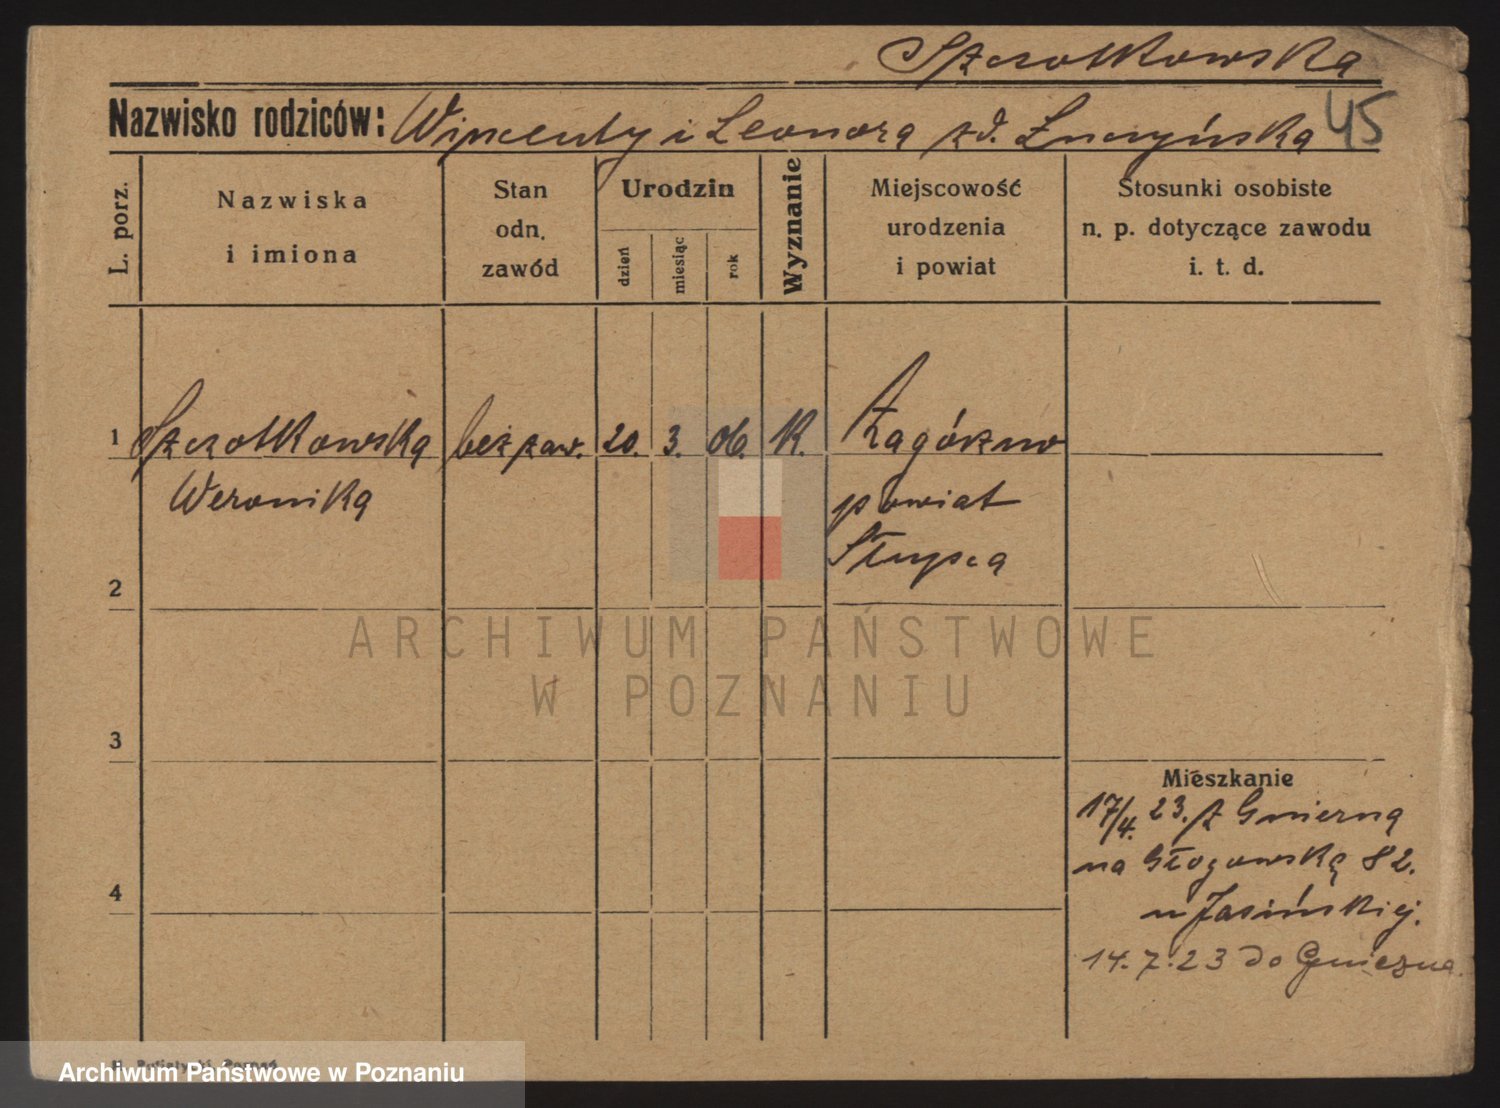 Szczotkowska
Nazwisko rodziców: Wincenty i Leonora zd. Łuczyńska 45
L. porz.
Nazwiska
i imiona
Stan
odn.
zawód
Urodzin
dzień
miesiąc
rok
Wyznanie
Miejscowość
urodzenia
i powiat
Stosunki osobiste
n. p. dotyczące zawodu
i. t. d.
1 Szczotkowska bez zaw. 20. 3. 06. K. Zagórzno
Weronika powiat
Słupca
2
ARCHIWUM PAŃSTWOWE
W POZNANIU
3
Mieszkanie
17/4. 23. z Gniezna
na Głogowską 82.
u Jasińskiej.
4
14. 7. 23 do Gniezna.
Archiwum Państwowe w Poznaniu